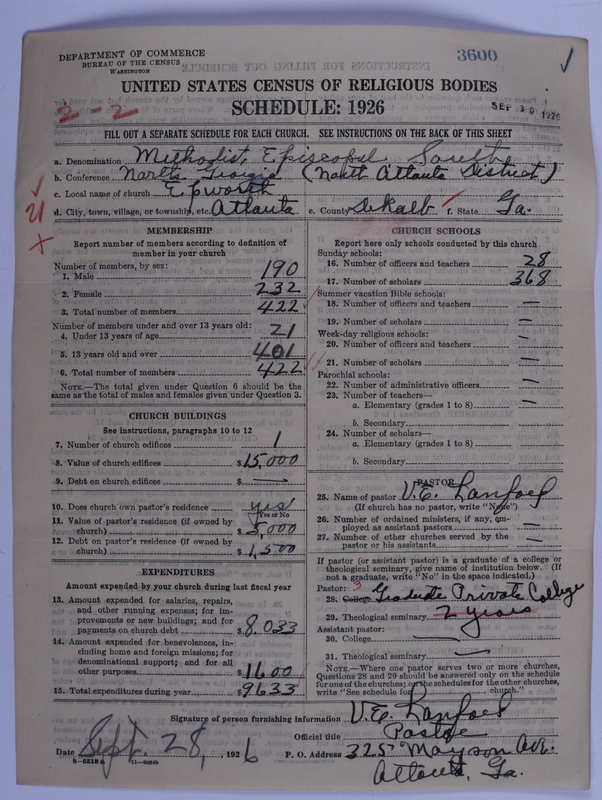 DEPARTMENT OF COMMERCE
BUREAU OF THE CENSUS
WASHINGTON
3600
UNITED STATES CENSUS OF RELIGIOUS BODIES
2-2
SCHEDULE: 1926
SEP 30 1926
FILL OUT A SEPARATE SCHEDULE FOR EACH CHURCH. SEE INSTRUCTIONS ON THE BACK OF THIS SHEET
a. Denomination Methodist Episcopal South
b. Conference North Georgia (North Atlanta District)
c. Local name of church Epworth
d. City, town, village, or township, etc. Atlanta e. County DeKalb f. State Ga.
21
MEMBERSHIP
Report number of members according to definition of
member in your church
Number of members, by sex:
1. Male 190
2. Female 232
3. Total number of members 422
Number of members under and over 13 years old:
4. Under 13 years of age 21
5. 13 years old and over 401
6. Total number of members 422
NOTE.—The total given under Question 6 should be the
same as the total of males and females given under Question 3.
CHURCH BUILDINGS
See instructions, paragraphs 10 to 12
7. Number of church edifices 1
8. Value of church edifices $15,000
9. Debt on church edifices $ —
10. Does church own pastor's residence yes
Yes or No
11. Value of pastor's residence (if owned by
church) $ 5,000
12. Debt on pastor's residence (if owned by
church) $ 1,500
EXPENDITURES
Amount expended by your church during last fiscal year
13. Amount expended for salaries, repairs,
and other running expenses; for im-
provements or new buildings; and for
payments on church debt $ 8,033
14. Amount expended for benevolences, in-
cluding home and foreign missions; for
denominational support; and for all
other purposes $ 1600
15. Total expenditures during year $ 9633
CHURCH SCHOOLS
Report here only schools conducted by this church
Sunday schools:
16. Number of officers and teachers 28
17. Number of scholars 368
Summer vacation Bible schools:
18. Number of officers and teachers —
19. Number of scholars —
Week-day religious schools:
20. Number of officers and teachers —
21. Number of scholars —
Parochial schools:
22. Number of administrative officers —
23. Number of teachers—
a. Elementary (grades 1 to 8) —
b. Secondary
24. Number of scholars—
a. Elementary (grades 1 to 8) —
b. Secondary
PASTOR
25. Name of pastor V.E. Lanford
(If church has no pastor, write "None")
26. Number of ordained ministers, if any, em-
ployed as assistant pastors —
27. Number of other churches served by the
pastor or his assistants —
If pastor (or assistant pastor) is a graduate of a college or
theological seminary, give name of institution below. (If
not a graduate, write "No" in the space indicated.)
Pastor: 3
28. College Graduate Private College
29. Theological seminary 2 years
Assistant pastor:
30. College —
31. Theological seminary —
NOTE.—Where one pastor serves two or more churches,
Questions 28 and 29 should be answered only on the schedule
for one of the churches; on the schedules for the other churches,
write "See schedule for church."
Signature of person furnishing information V.E. Lanford
Official title Pastor
Date Sept. 28, 1926 P. O. Address 325 Mayson Ave.
8—5518 a 11—9024b
Atlanta, Ga.